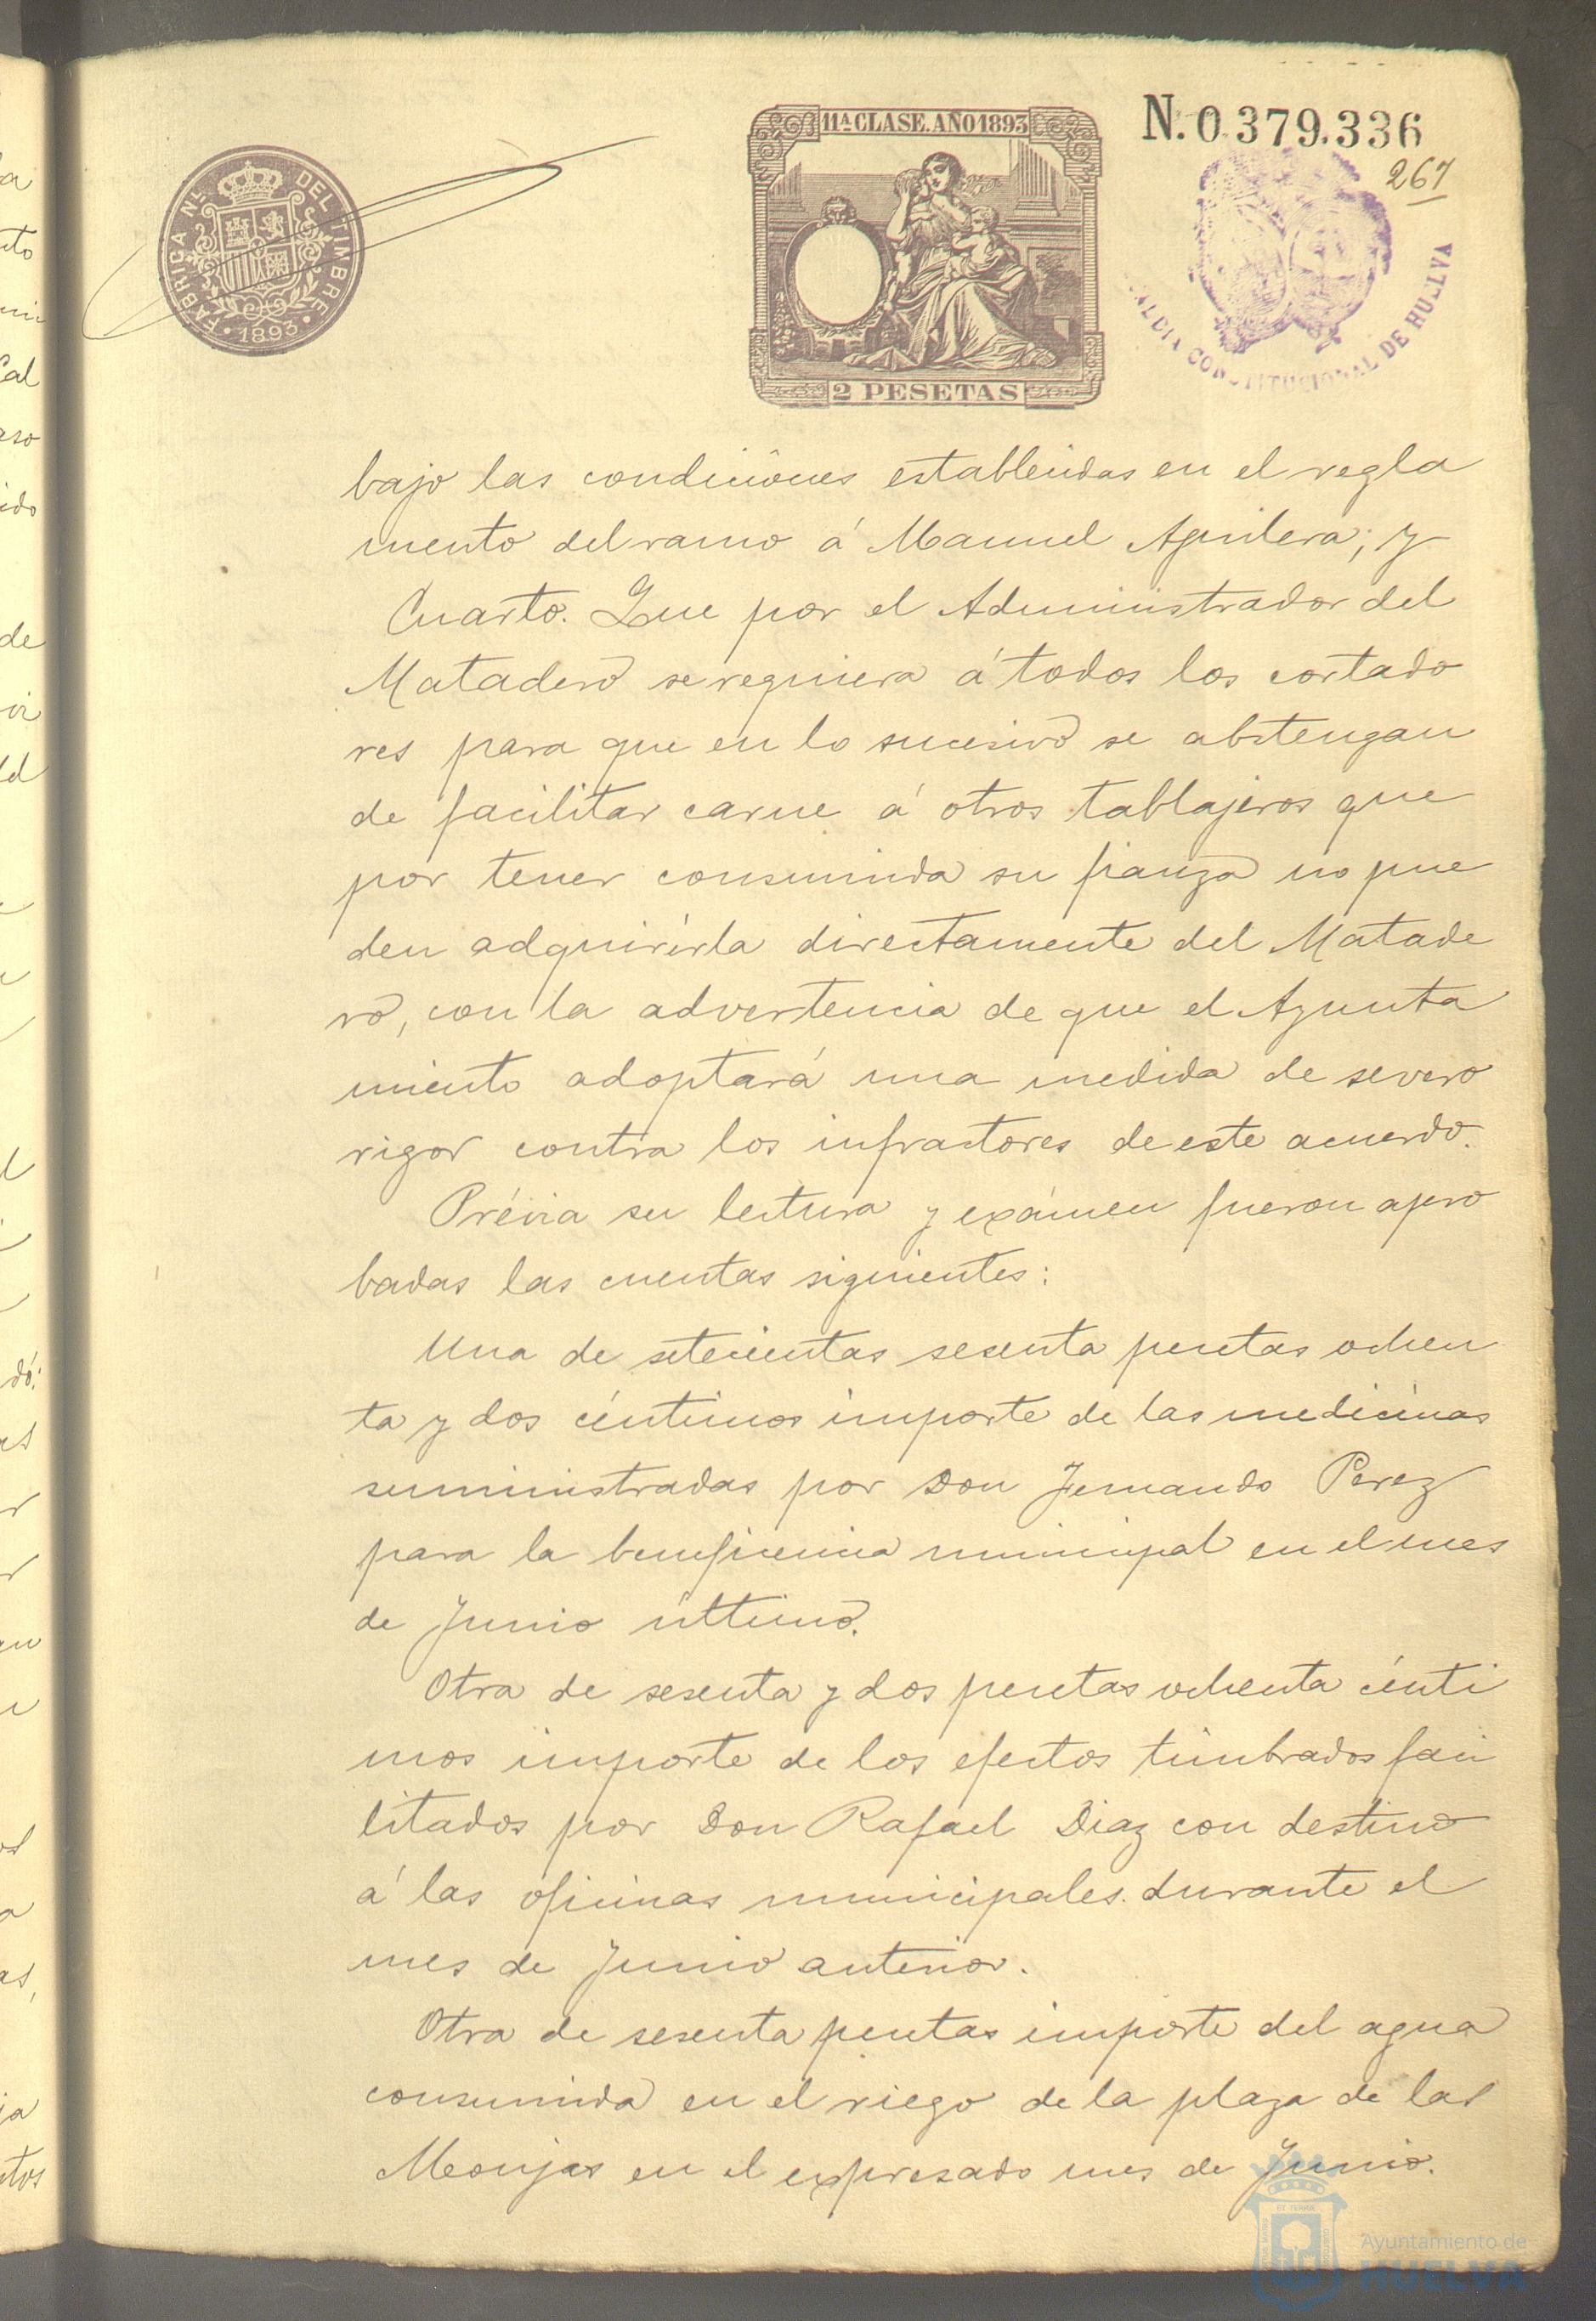 11ª CLASE. AÑO 1893
N. 0.379.336
267
FABRICA Nᴸ DEL TIMBRE
1893
ALCALDIA CONSTITUCIONAL DE HUELVA
2 PESETAS
bajo las condiciones establecidas en el regla
mento del ramo á Manuel Aguilera; y
Cuarto. Que por el Administrador del
Matadero se requiera á todos los cortado
res para que en lo sucesivo se abstengan
de facilitar carne á otros tablajeros que
por tener consumida su fianza no pue
den adquirirla directamente del Matade
ro, con la advertencia de que el Ayunta
miento adoptará una medida de severo
rigor contra los infractores de este acuerdo.
Prévia su lectura y exámen fueron apro
badas las cuentas siguientes:
Una de setecientas sesenta pesetas ochen
ta y dos céntimos importe de las medicinas
suministradas por Don Fernando Perez
para la beneficencia municipal en el mes
de Junio último.
Otra de sesenta y dos pesetas ochenta cénti
mos importe de los efectos timbrados faci
litados por Don Rafael Diaz con destino
á las oficinas municipales durante el
mes de Junio anterior.
Otra de sesenta pesetas importe del agua
consumida en el riego de la plaza de las
Monjas en el expresado mes de Junio.
Ayuntamiento de
HUELVA